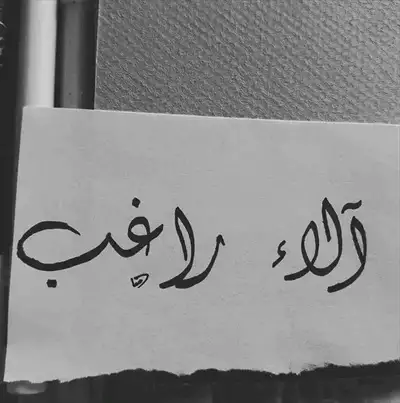 آلاء راغب